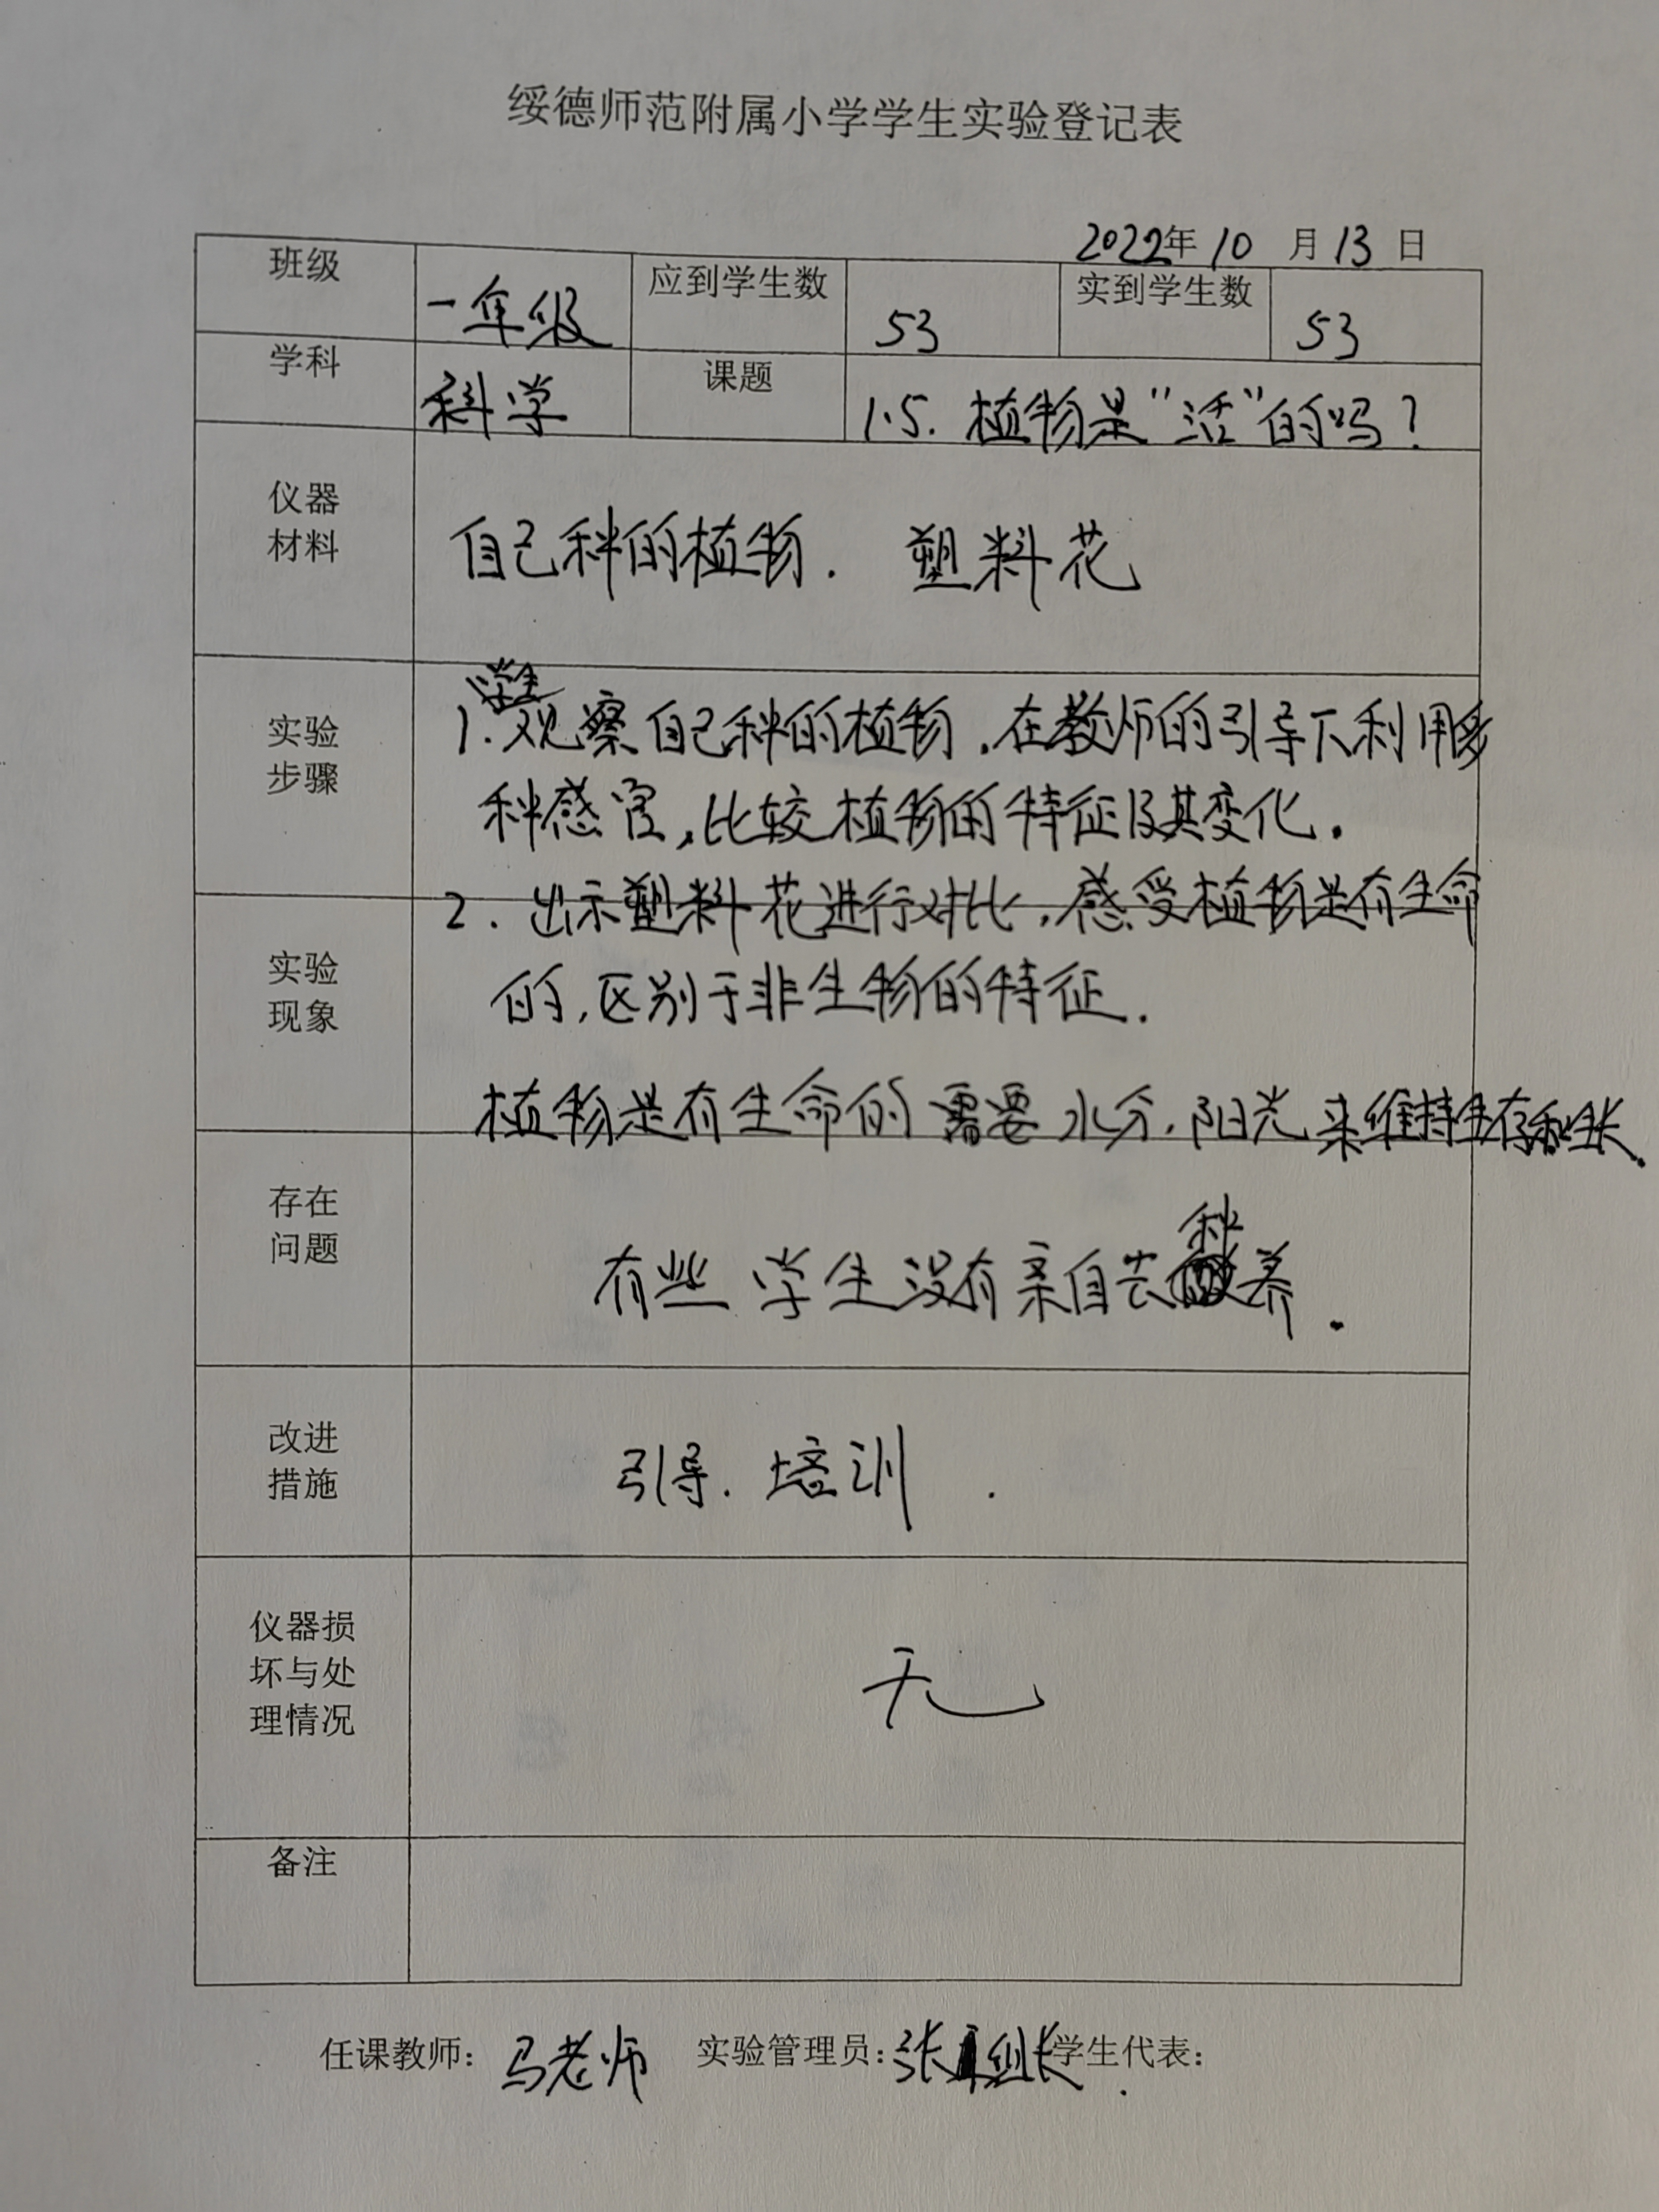 绥德师范附属小学学生实验登记表
2022年10月13日
班级 一年级 应到学生数 53 实到学生数 53
学科 科学 课题 1.5. 植物是“活”的吗?
仪器
材料
自己种的植物. 塑料花
实验
步骤
1.学生观察自己种的植物.在教师的引导下利用多
种感官,比较植物的特征及其变化.
2. 出示塑料花进行对比,感受植物是有生命
的,区别于非生物的特征.
实验
现象
植物是有生命的需要水分.阳光来维持生存和生长.
存在
问题
有些学生没有亲自去种养.
改进
措施
引导. 培训.
仪器损
坏与处
理情况
无
备注
任课教师: 马老师 实验管理员: 张组长 学生代表: